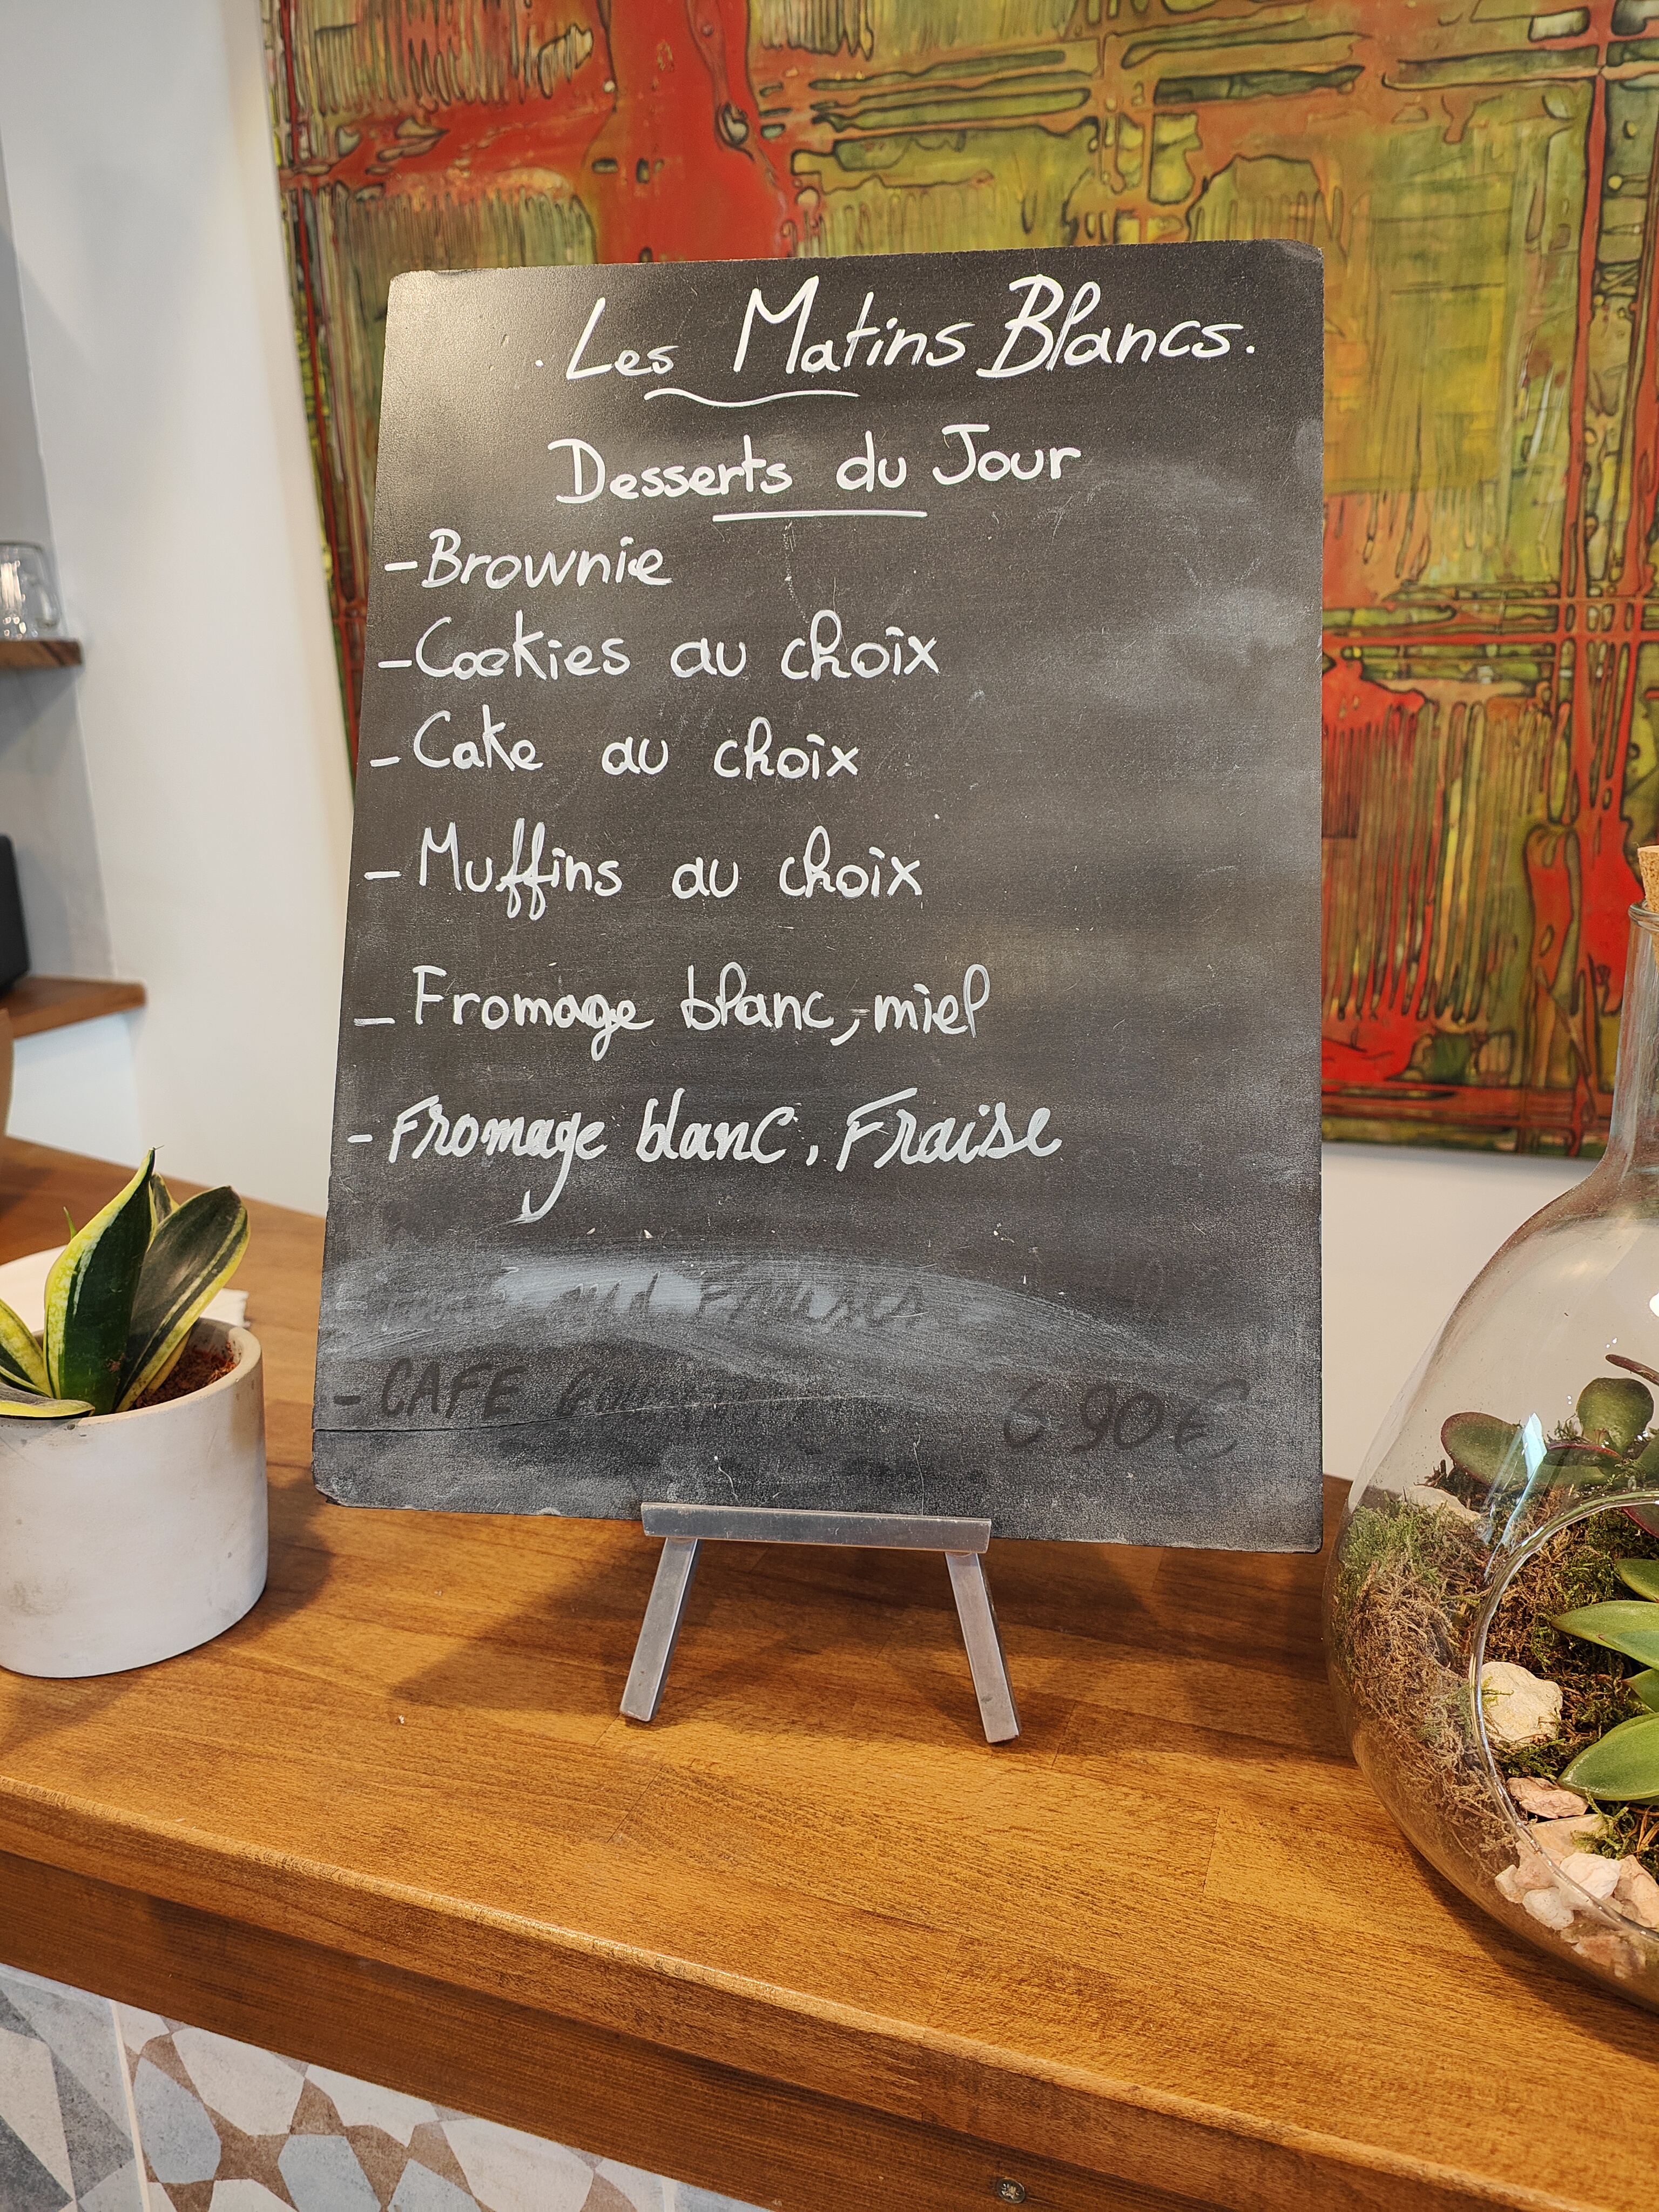 . Les Matins Blancs.
Desserts du Jour
- Brownie
- Cookies au choix
- Cake au choix
- Muffins au choix
- Fromage blanc, miel
- Fromage blanc, Fraise
Fraises
- CAFE 6 90€